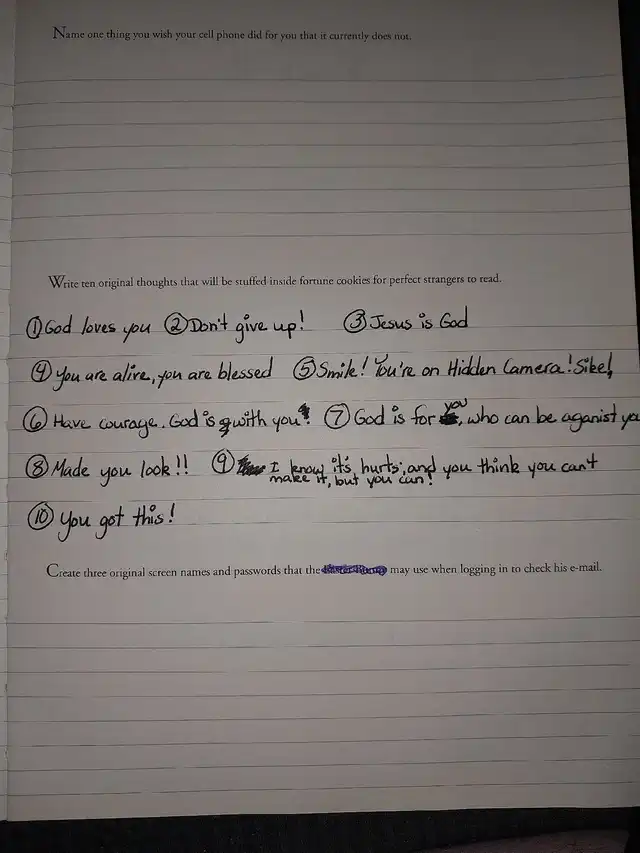 Name one thing you wish your cell phone did for you that it currently does not.
Write ten original thoughts that will be stuffed inside fortune cookies for perfect strangers to read.
① God loves you ② Don't give up! ③ Jesus is God
④ You are alive, you are blessed ⑤ Smile! You're on Hidden Camera! Sike!
⑥ Have courage. God is with you! ⑦ God is for you, who can be aganist yo
⑧ Made you look!! ⑨ I know it's hurts, and you think you can't
make it, but you can!
⑩ You got this!
Create three original screen names and passwords that the may use when logging in to check his e-mail.